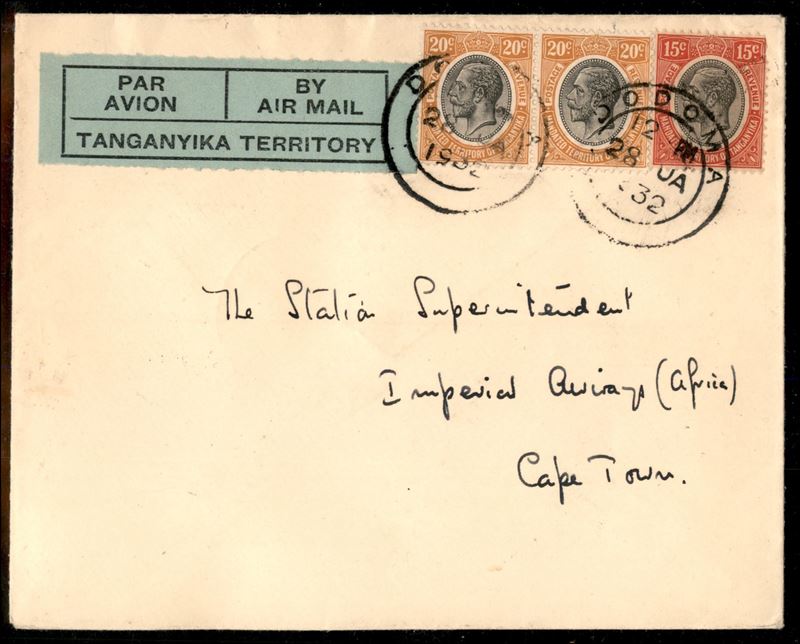 PAR AVION
BY AIR MAIL
TANGANYIKA TERRITORY
20c 20c
POSTAGE REVENUE
MANDATED TERRITORY OF TANGANYIKA
20c 20c
POSTAGE REVENUE
MANDATED TERRITORY OF TANGANYIKA
15c 15c
REVENUE
MANDATED TERRITORY OF TANGANYIKA
1932
DODOMA
12 PM
28 JA
32
The Station Superintendent
Imperial Airways (Africa)
Cape Town.